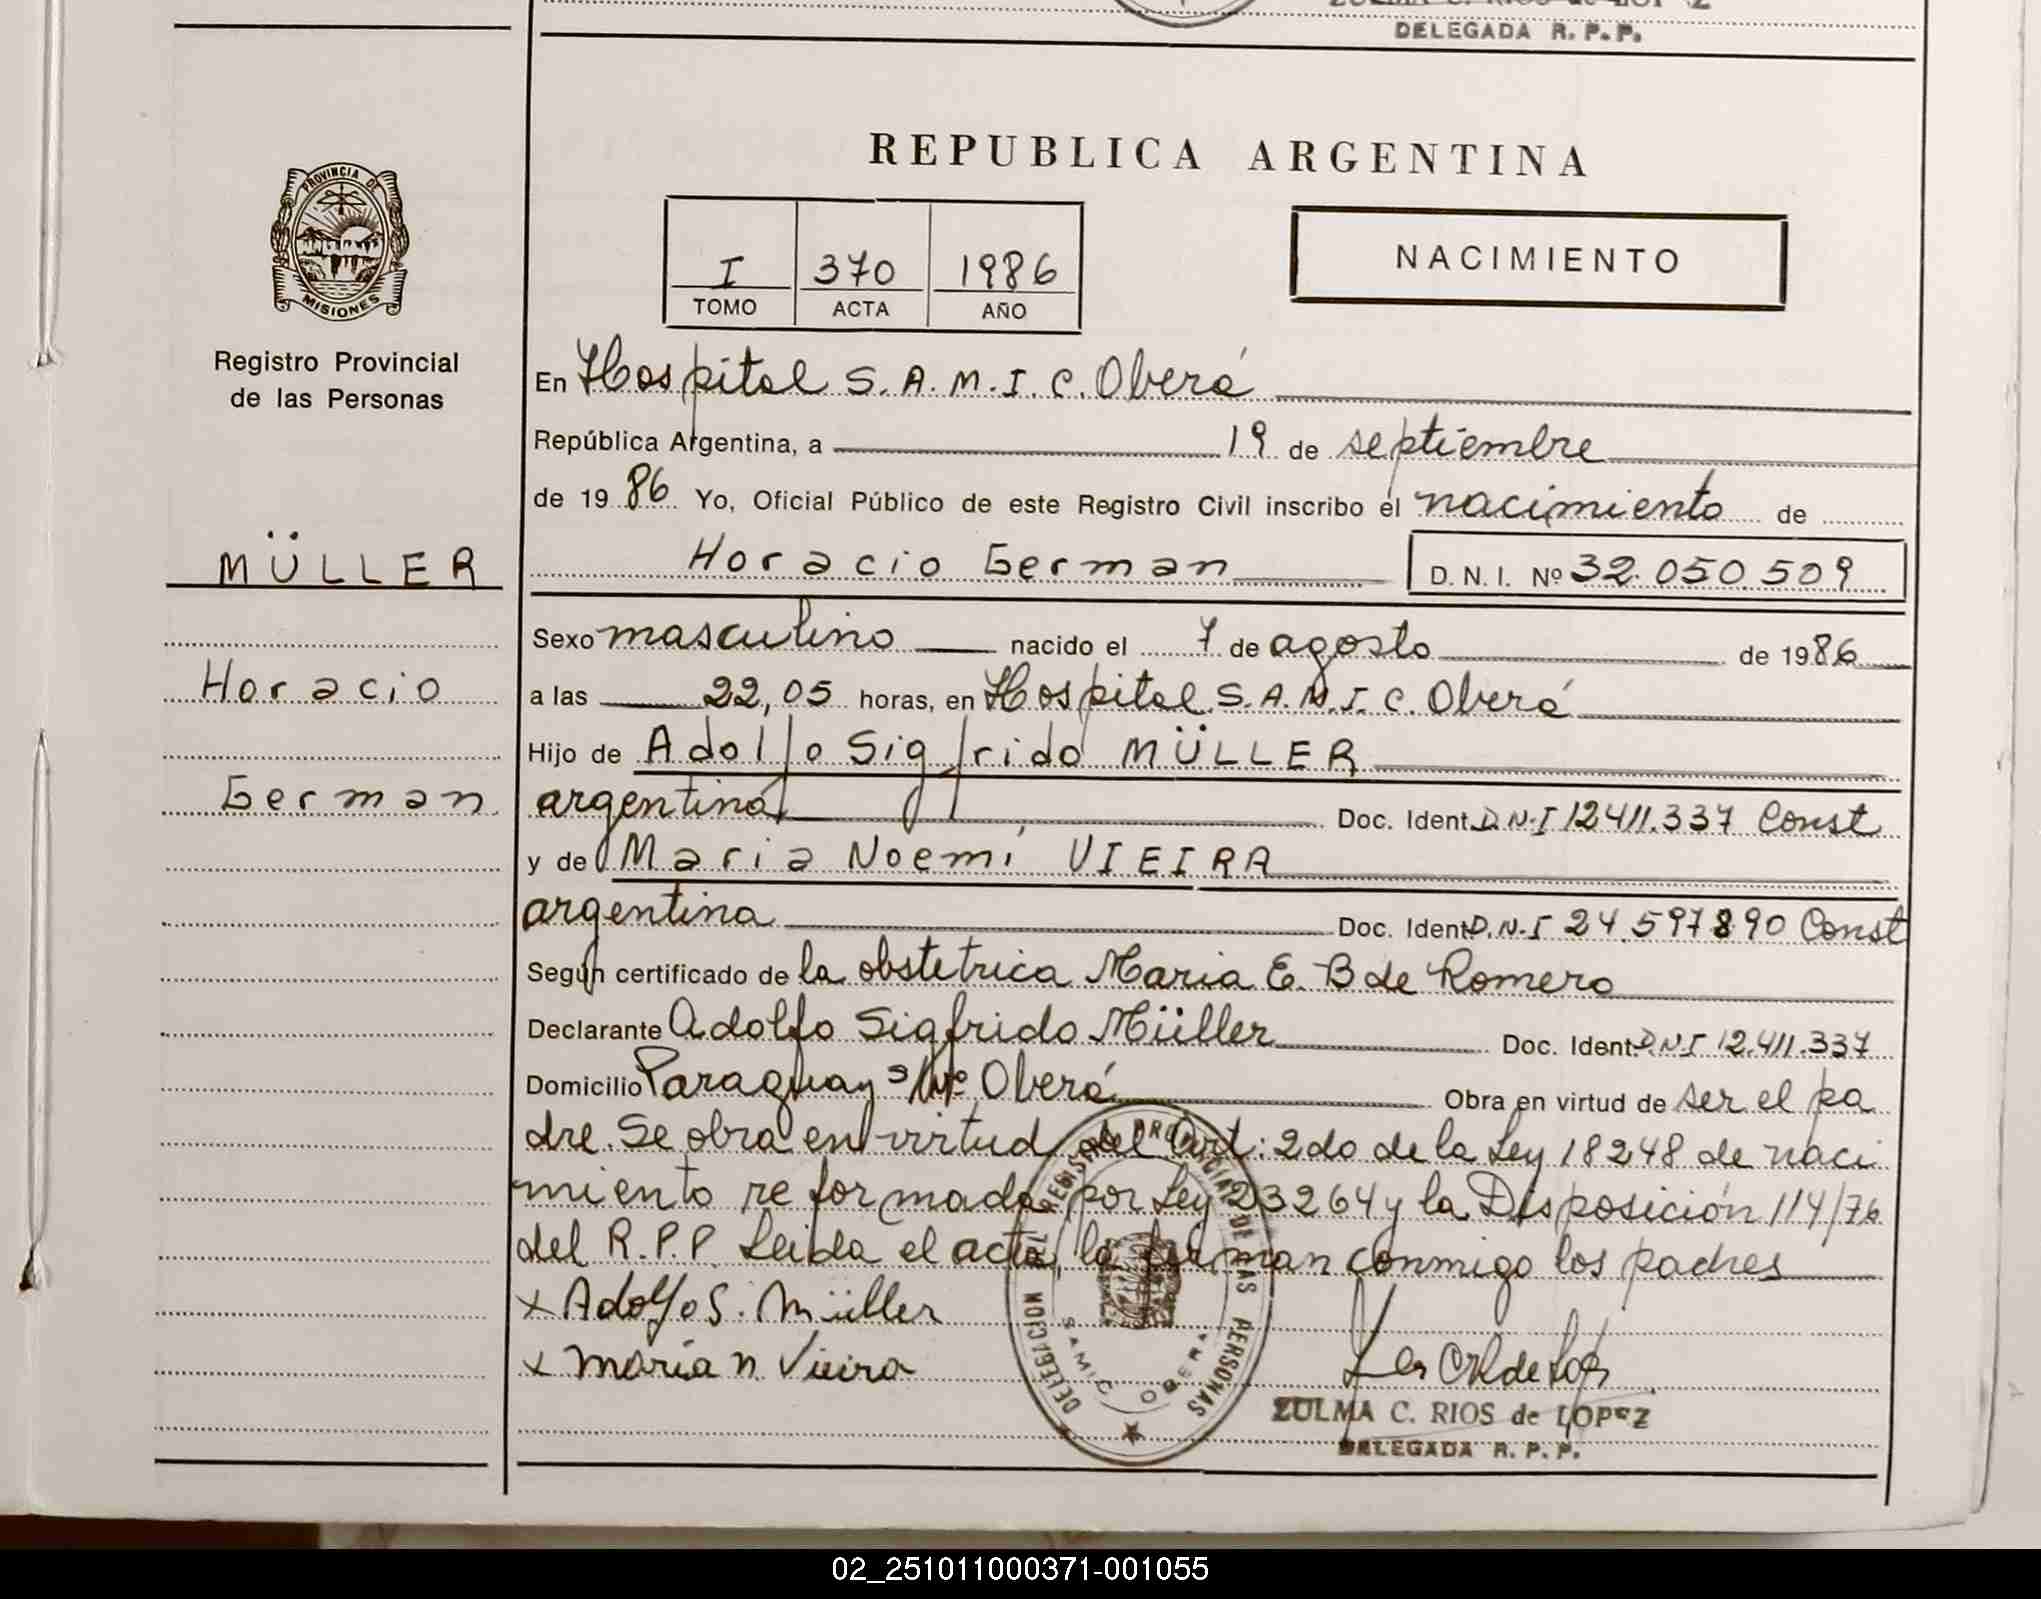 DELEGADA R. P. P.
REPUBLICA ARGENTINA
PROVINCIA DE
MISIONES
Registro Provincial
de las Personas
I 370 1986
TOMO ACTA AÑO
NACIMIENTO
MÜLLER
Horacio
German
En Hospital S.A.M.I.C. Oberá
República Argentina, a 19 de septiembre
de 1986 Yo, Oficial Público de este Registro Civil inscribo el nacimiento de
Horacio German D. N. I. Nº 32.050.509
Sexo masculino nacido el 7 de agosto de 1986
a las 22,05 horas, en Hospital S.A.M.I.C. Oberá
Hijo de Adolfo Sigfrido MÜLLER
argentina Doc. Ident. D.N.I 12.411.337 Const
y de Maria Noemí VIEIRA
argentina Doc. Ident. D.N.I 24.597.890 Const
Según certificado de la obstetrica Maria E. B de Romero
Declarante Adolfo Sigfrido Müller Doc. Ident. D.N.I 12.411.337
Domicilio Paraguay s/Nº Oberá Obra en virtud de ser el pa
dre. Se obra en virtud del Art: 2do de la Ley 18248 de naci
miento reformada por Ley 23264 y la Disposición 114/76
del R.P.P. Leida el acta, la firman conmigo los padres
x Adolfo S. Müller
x Maria N. Vieira
DELEGACION DEL REGISTRO PROVINCIAL DE LAS PERSONAS
SAMIC OBERA
ZULMA C. RIOS de LOPEZ
DELEGADA R. P. P.
02_251011000371-001055